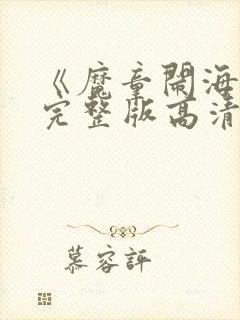 《魔童闹海
完整版高清
慕容評